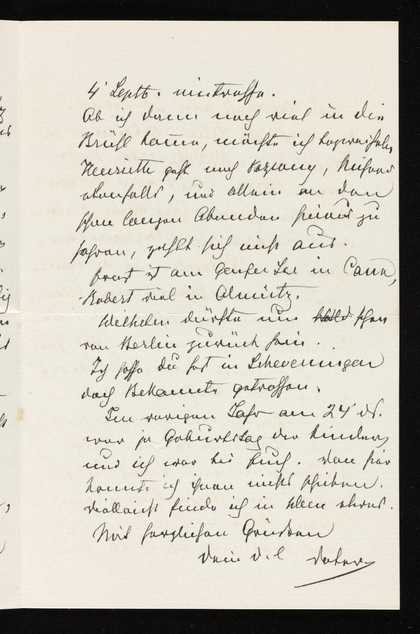 4' Septb. eintreffe.
Ab ich dann noch viel in die
Brühl komme, möchte ich bezweifeln
Henriette geht nach
ebenfalls, und allein an den
schon langen Abenden hinaus zu
fahren, zahlt sich nicht aus.
Ernst ist am Genfer See in
Robert viel in Olmütz.
Wilhelm dürfte nun schon
von Berlin zurück sein.
Ich hoffe du hast in Scheveningen
doch Bekannte getroffen.
Im vorigen Jahr am 24' ds.
war ja Geburtstag der Kinder
und ich war bei Euch. Von hier
konnte ich ihnen nichts schicken.
Vielleicht finde ich in Wien etwas.
Mit herzlichen Grüssen
Dein d. l. Vater